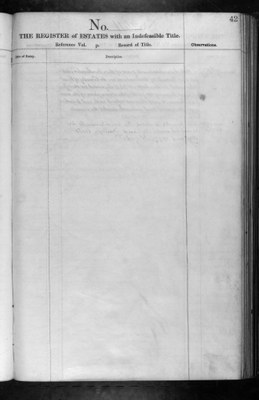 42
No.
THE REGISTER of ESTATES with an Indefeasible Title.
Reference Vol. p. Record of Title. Observations.
Date of Entry. Description